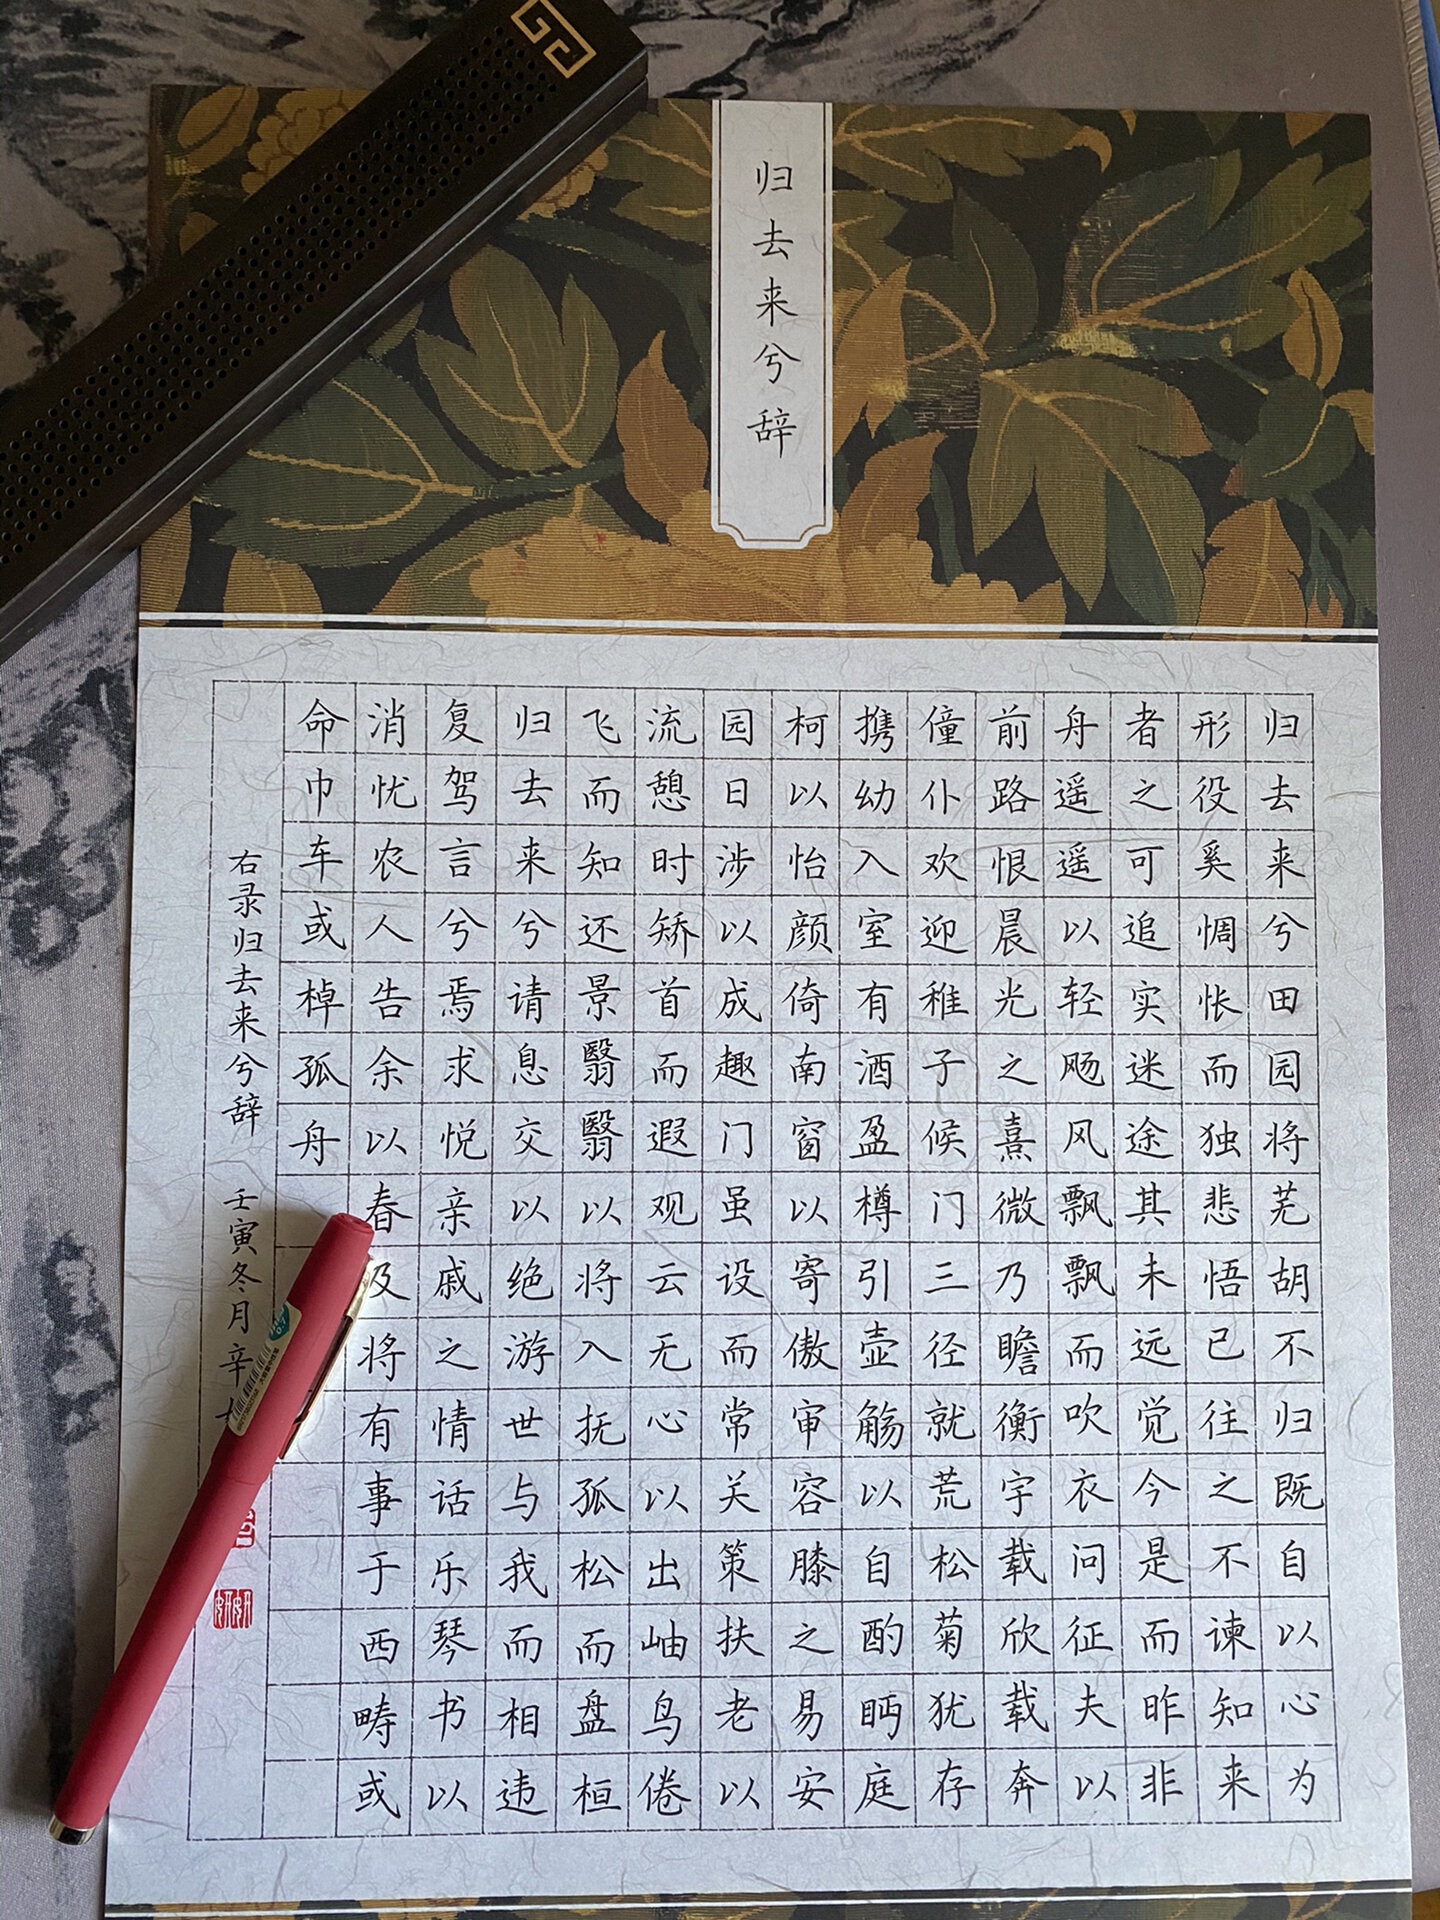 归去来兮辞
归去来兮田园将芜胡不归既自以心为
形役奚惆怅而独悲悟已往之不谏知来
者之可追实迷途其未远觉今是而昨非
舟遥遥以轻飏风飘飘而吹衣问征夫以
前路恨晨光之熹微乃瞻衡宇载欣载奔
僮仆欢迎稚子候门三径就荒松菊犹存
携幼入室有酒盈樽引壶觞以自酌眄庭
柯以怡颜倚南窗以寄傲审容膝之易安
园日涉以成趣门虽设而常关策扶老以
流憩时矫首而遐观云无心以出岫鸟倦
飞而知还景翳翳以将入抚孤松而盘桓
归去来兮请息交以绝游世与我而相违
复驾言兮焉求悦亲戚之情话乐琴书以
消忧农人告余以春及将有事于西畴或
命巾车或棹孤舟
右录归去来兮辞 壬寅冬月辛